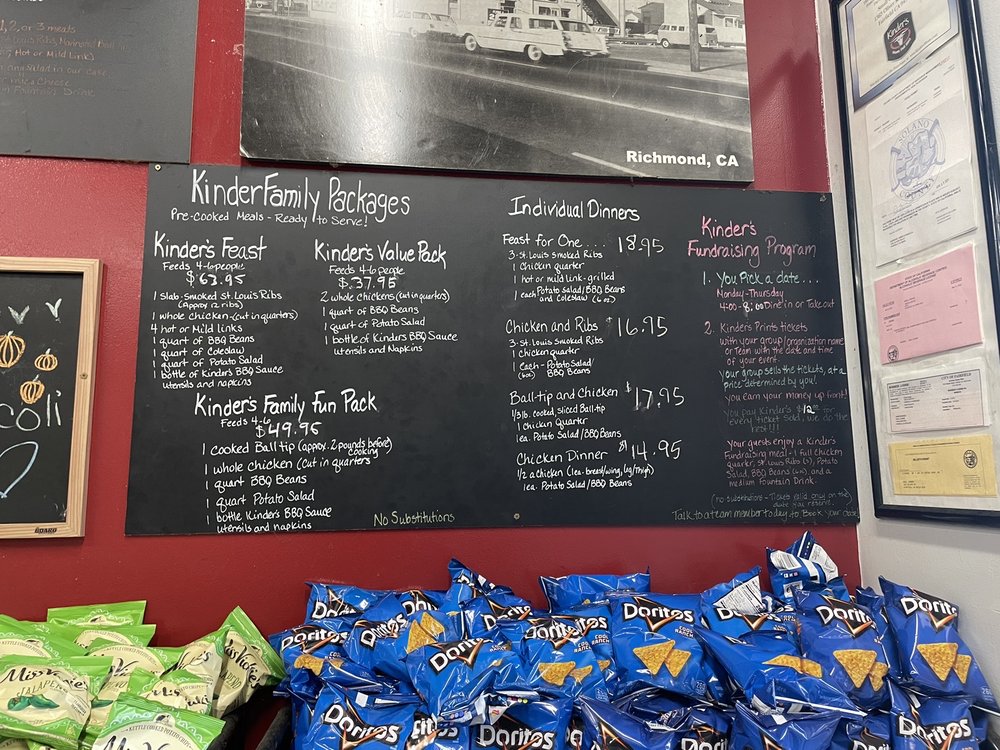 1, 2, or 3 meats
Hot or Mild Link)
Fountain Drink
Richmond, CA
Kinder Family Packages
Pre-Cooked Meals - Ready to Serve!
Kinder's Feast
Feeds 4-6 people
$63.95
1 Slab-Smoked St. Louis Ribs
(Approx 12 ribs)
1 whole chicken-(cut in quarters)
4 hot or Mild links
1 quart of BBQ Beans
1 quart of Coleslaw
1 quart of Potato Salad
1 bottle of Kinder's BBQ Sauce
utensils and napkins
Kinder's Value Pack
Feeds 4-6 people
$37.95
2 whole chickens (cut in quarters)
1 quart of BBQ Beans
1 quart of Potato Salad
1 bottle of Kinder's BBQ Sauce
utensils and Napkins
Kinder's Family Fun Pack
Feeds 4-6
$49.95
1 cooked Ball tip (approx. 2 pounds before cooking)
1 whole chicken (cut in quarters
1 quart BBQ Beans
1 quart Potato Salad
1 bottle Kinder's BBQ Sauce
utensils and napkins
No Substitutions
Individual Dinners
Feast for One... 18.95
3-St. Louis Smoked Ribs
1 Chicken quarter
1 hot or mild link-grilled
1 each Potato Salad/BBQ Beans
and Coleslaw (6 oz)
Chicken and Ribs $16.95
3-St. Louis Smoked Ribs
1 Chicken quarter
1 Each - Potato Salad/
(6oz) BBQ Beans
Ball-tip and Chicken $17.95
1/3 lb. cooked, sliced Ball-tip
1 Chicken Quarter
1 ea. Potato Salad/BBQ Beans
Chicken Dinner $14.95
1/2 a chicken (1 ea. breast/wing, leg/thigh)
1 ea. Potato Salad/BBQ Beans
Kinder's
Fundraising Program
1. You Pick a date...
Monday-Thursday
4:00-8:00 Dine in or Take out
2. Kinder's Prints tickets
with your group/organization name
or Team with the date and time
of your event.
your group sells the tickets, at a
price determined by you!
you earn your money up front!
you pay Kinder's $12.00 for
every ticket sold, we do the
rest!!!
Your guests enjoy a Kinder's
Fundraising meal - 1 full chicken
quarter, St. Louis Ribs (2), Potato
Salad, BBQ Beans (6oz), and a
medium Fountain Drink.
(no substitutions - Tickets valid only on the
date you reserve.
Talk to a team member today to Book your date
Kinder's
coli
BOARD
Miss Vickie's
JALAPEÑO
Miss Vickie's
Doritos
COOL RANCH
Doritos
Doritos
Doritos
Doritos
Doritos
Doritos
Doritos
Doritos
Doritos